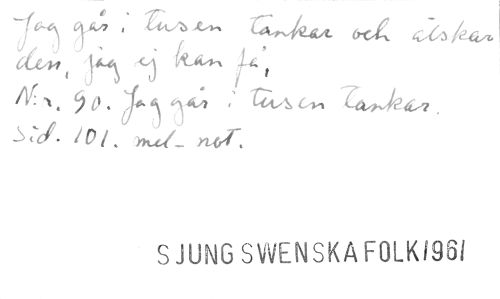 Jag går i tusen tankar och älskar
den, jag ej kan få,
N:r. 90. Jag går i tusen tankar.
Sid. 101. mel-not.
SJUNG SWENSKA FOLK/1961